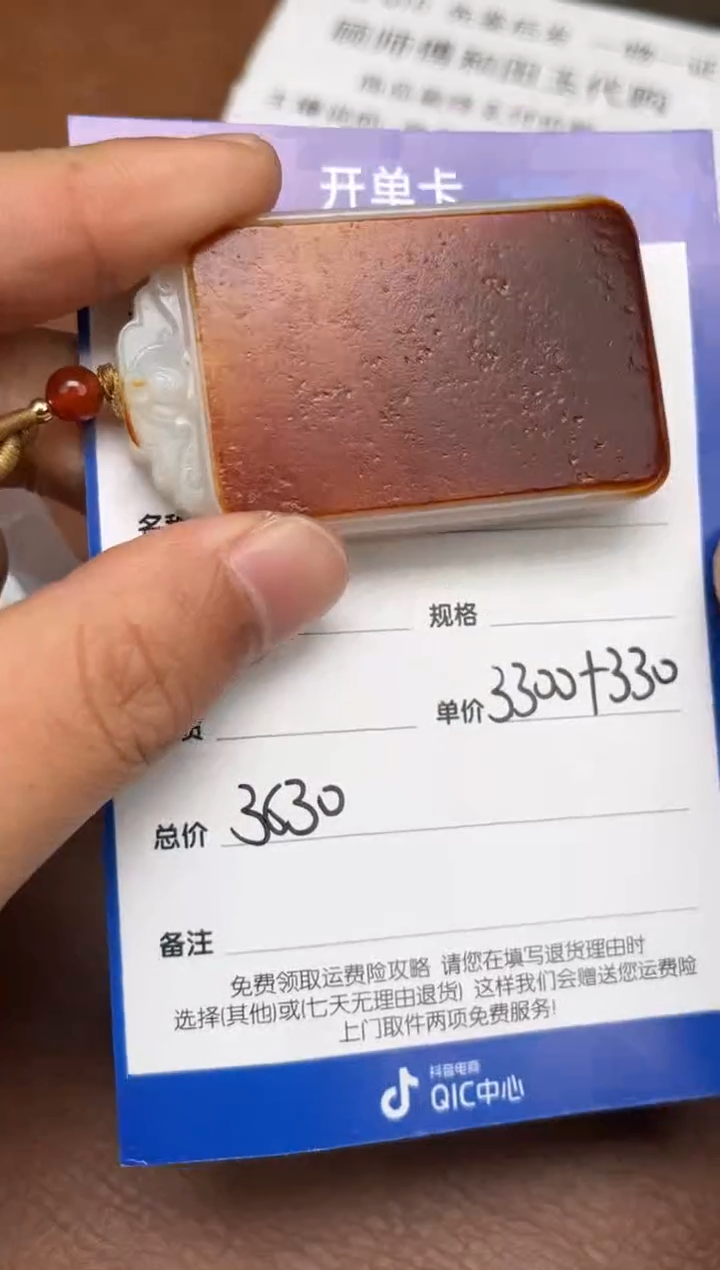 开单卡
规格
单价 3300+330
总价 3630
备注
免费领取运费险攻略 请您在填写退货理由时
选择(其他)或(七天无理由退货) 这样我们会赠送您运费险
上门取件两项免费服务!
抖音电商
QIC中心